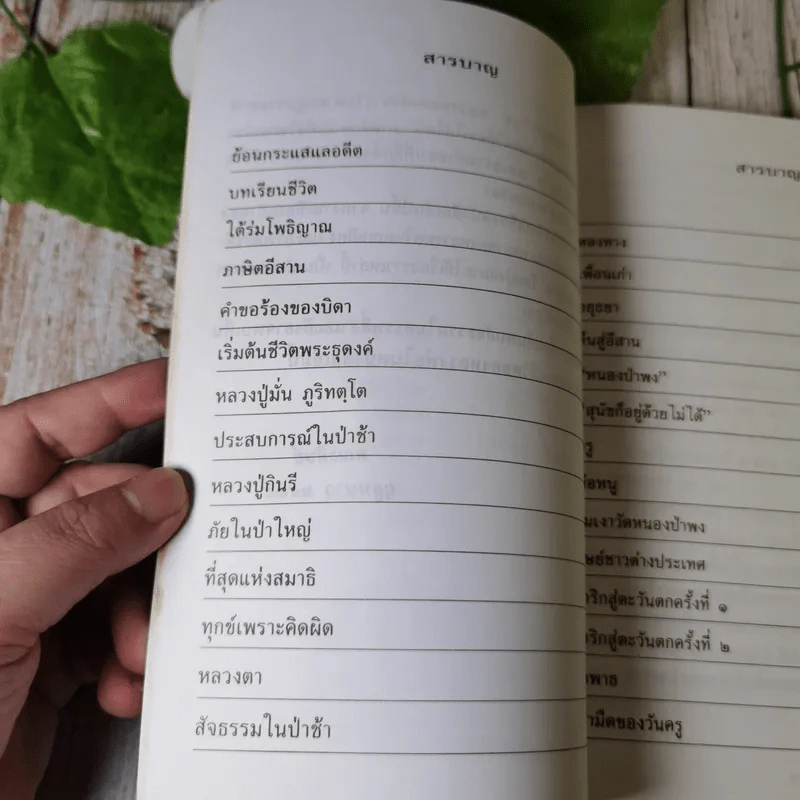 สารบาญ
ย้อนกระแสแลอดีต
บทเรียนชีวิต
ใต้ร่มโพธิญาณ
ภาษิตอีสาน
คำขอร้องของบิดา
เริ่มต้นชีวิตพระธุดงค์
หลวงปู่มั่น ภูริทตฺโต
ประสบการณ์ในป่าช้า
หลวงปู่กินรี
ภัยในป่าใหญ่
ที่สุดแห่งสมาธิ
ทุกข์เพราะคิดผิด
หลวงตา
สัจธรรมในป่าช้า
สารบาญ
เพื่อนเก่า
อยุธยา
สู่อีสาน
“หนองป่าพง”
“สุนัขก็อยู่ด้วยไม่ได้”
เงาวัดหนองป่าพง
ชาวต่างประเทศ
สู่ตะวันตกครั้งที่ ๑
สู่ตะวันตกครั้งที่ ๒
ของวันครู